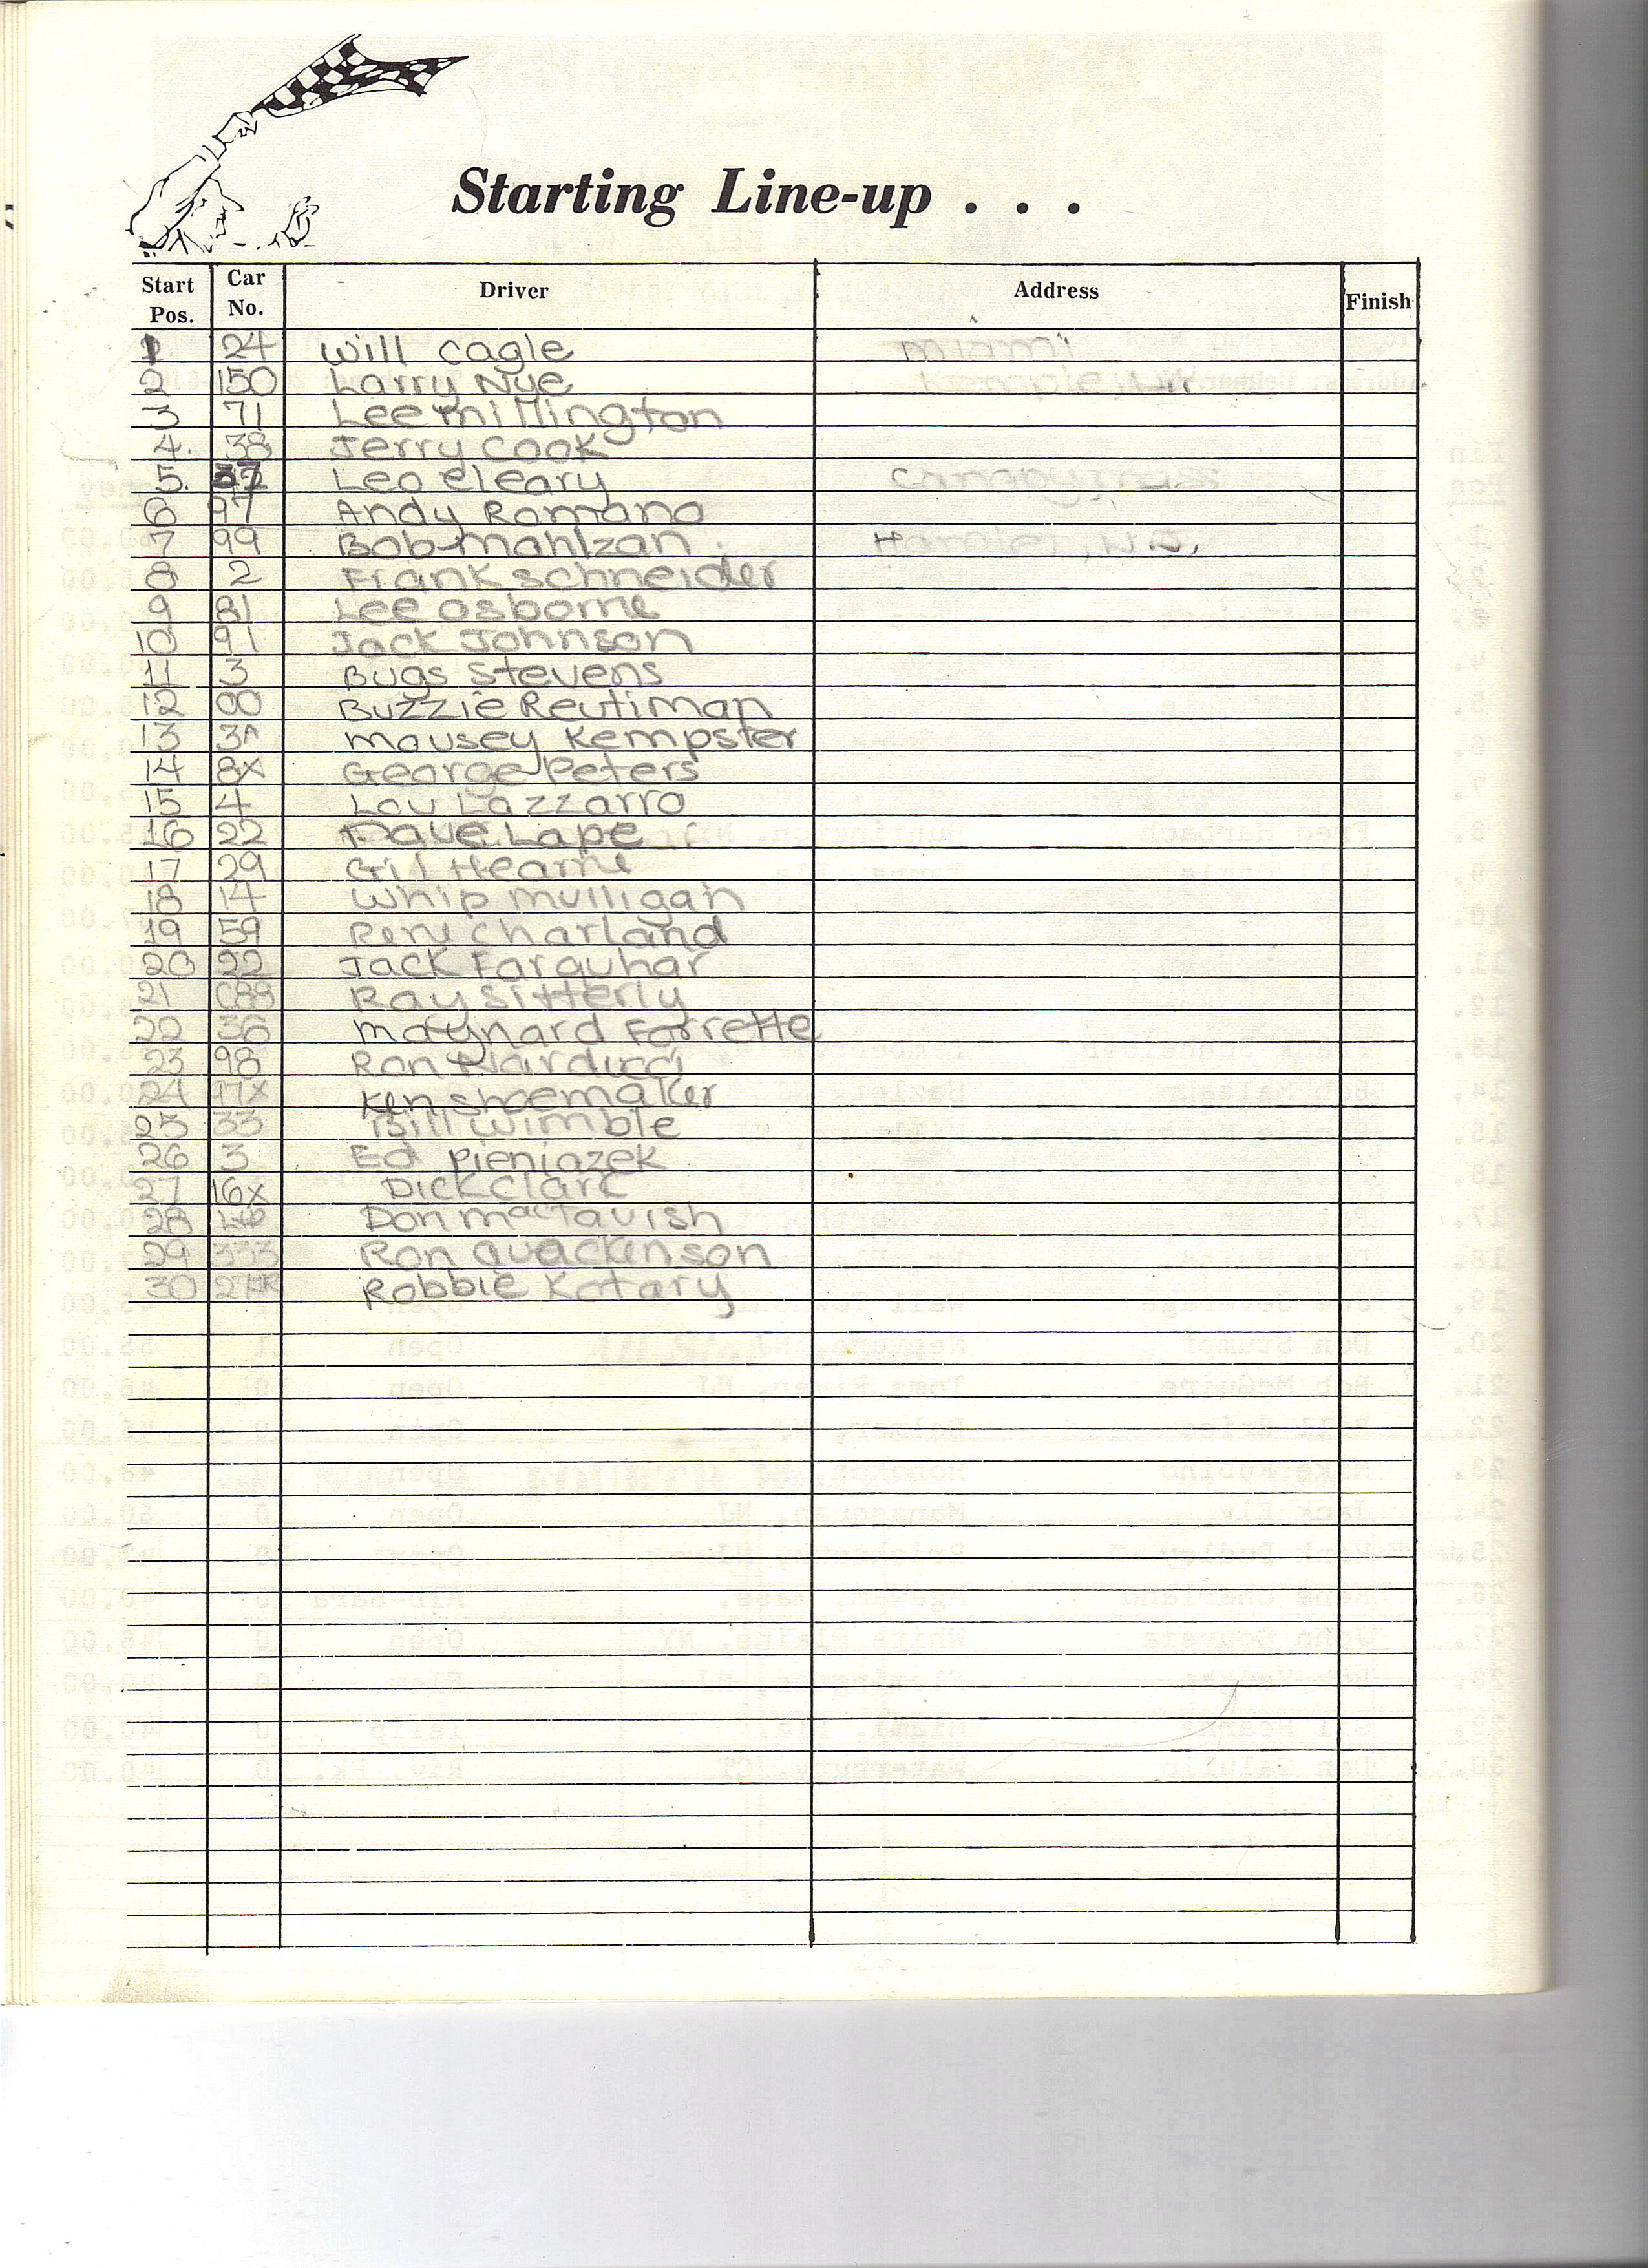 Starting Line-up . . .
Start Pos. Car No. Driver Address Finish
1 24 Will Cagle Miami
2 150 Larry Nye
3 71 Lee Millington
4. 38 Jerry Cook
5. 37 Leo Cleary
6 97 Andy Romano
7 99 Bob Mahlzan
8 2 Frank Schneider
9 81 Lee Osborne
10 91 Jack Johnson
11 3 Bugs Stevens
12 00 Buzzie Reutiman
13 3A Mousey Kempster
14 8X George Peters
15 4 Lou Lazzarro
16 22 Dave Lape
17 29 Gil Hearne
18 14 Whip Mulligan
19 59 Rene Charland
20 22 Jack Farquhar
21 C89 Ray Sitterly
22 36 Maynard Forrette
23 98 Ron Narducci
24 97X Ken Shoemaker
25 33 Bill Wimble
26 3 Ed Pieniazek
27 16X Dick Clark
28 Don MacTavish
29 333 Ron Quackinson
30 Robbie Kotary